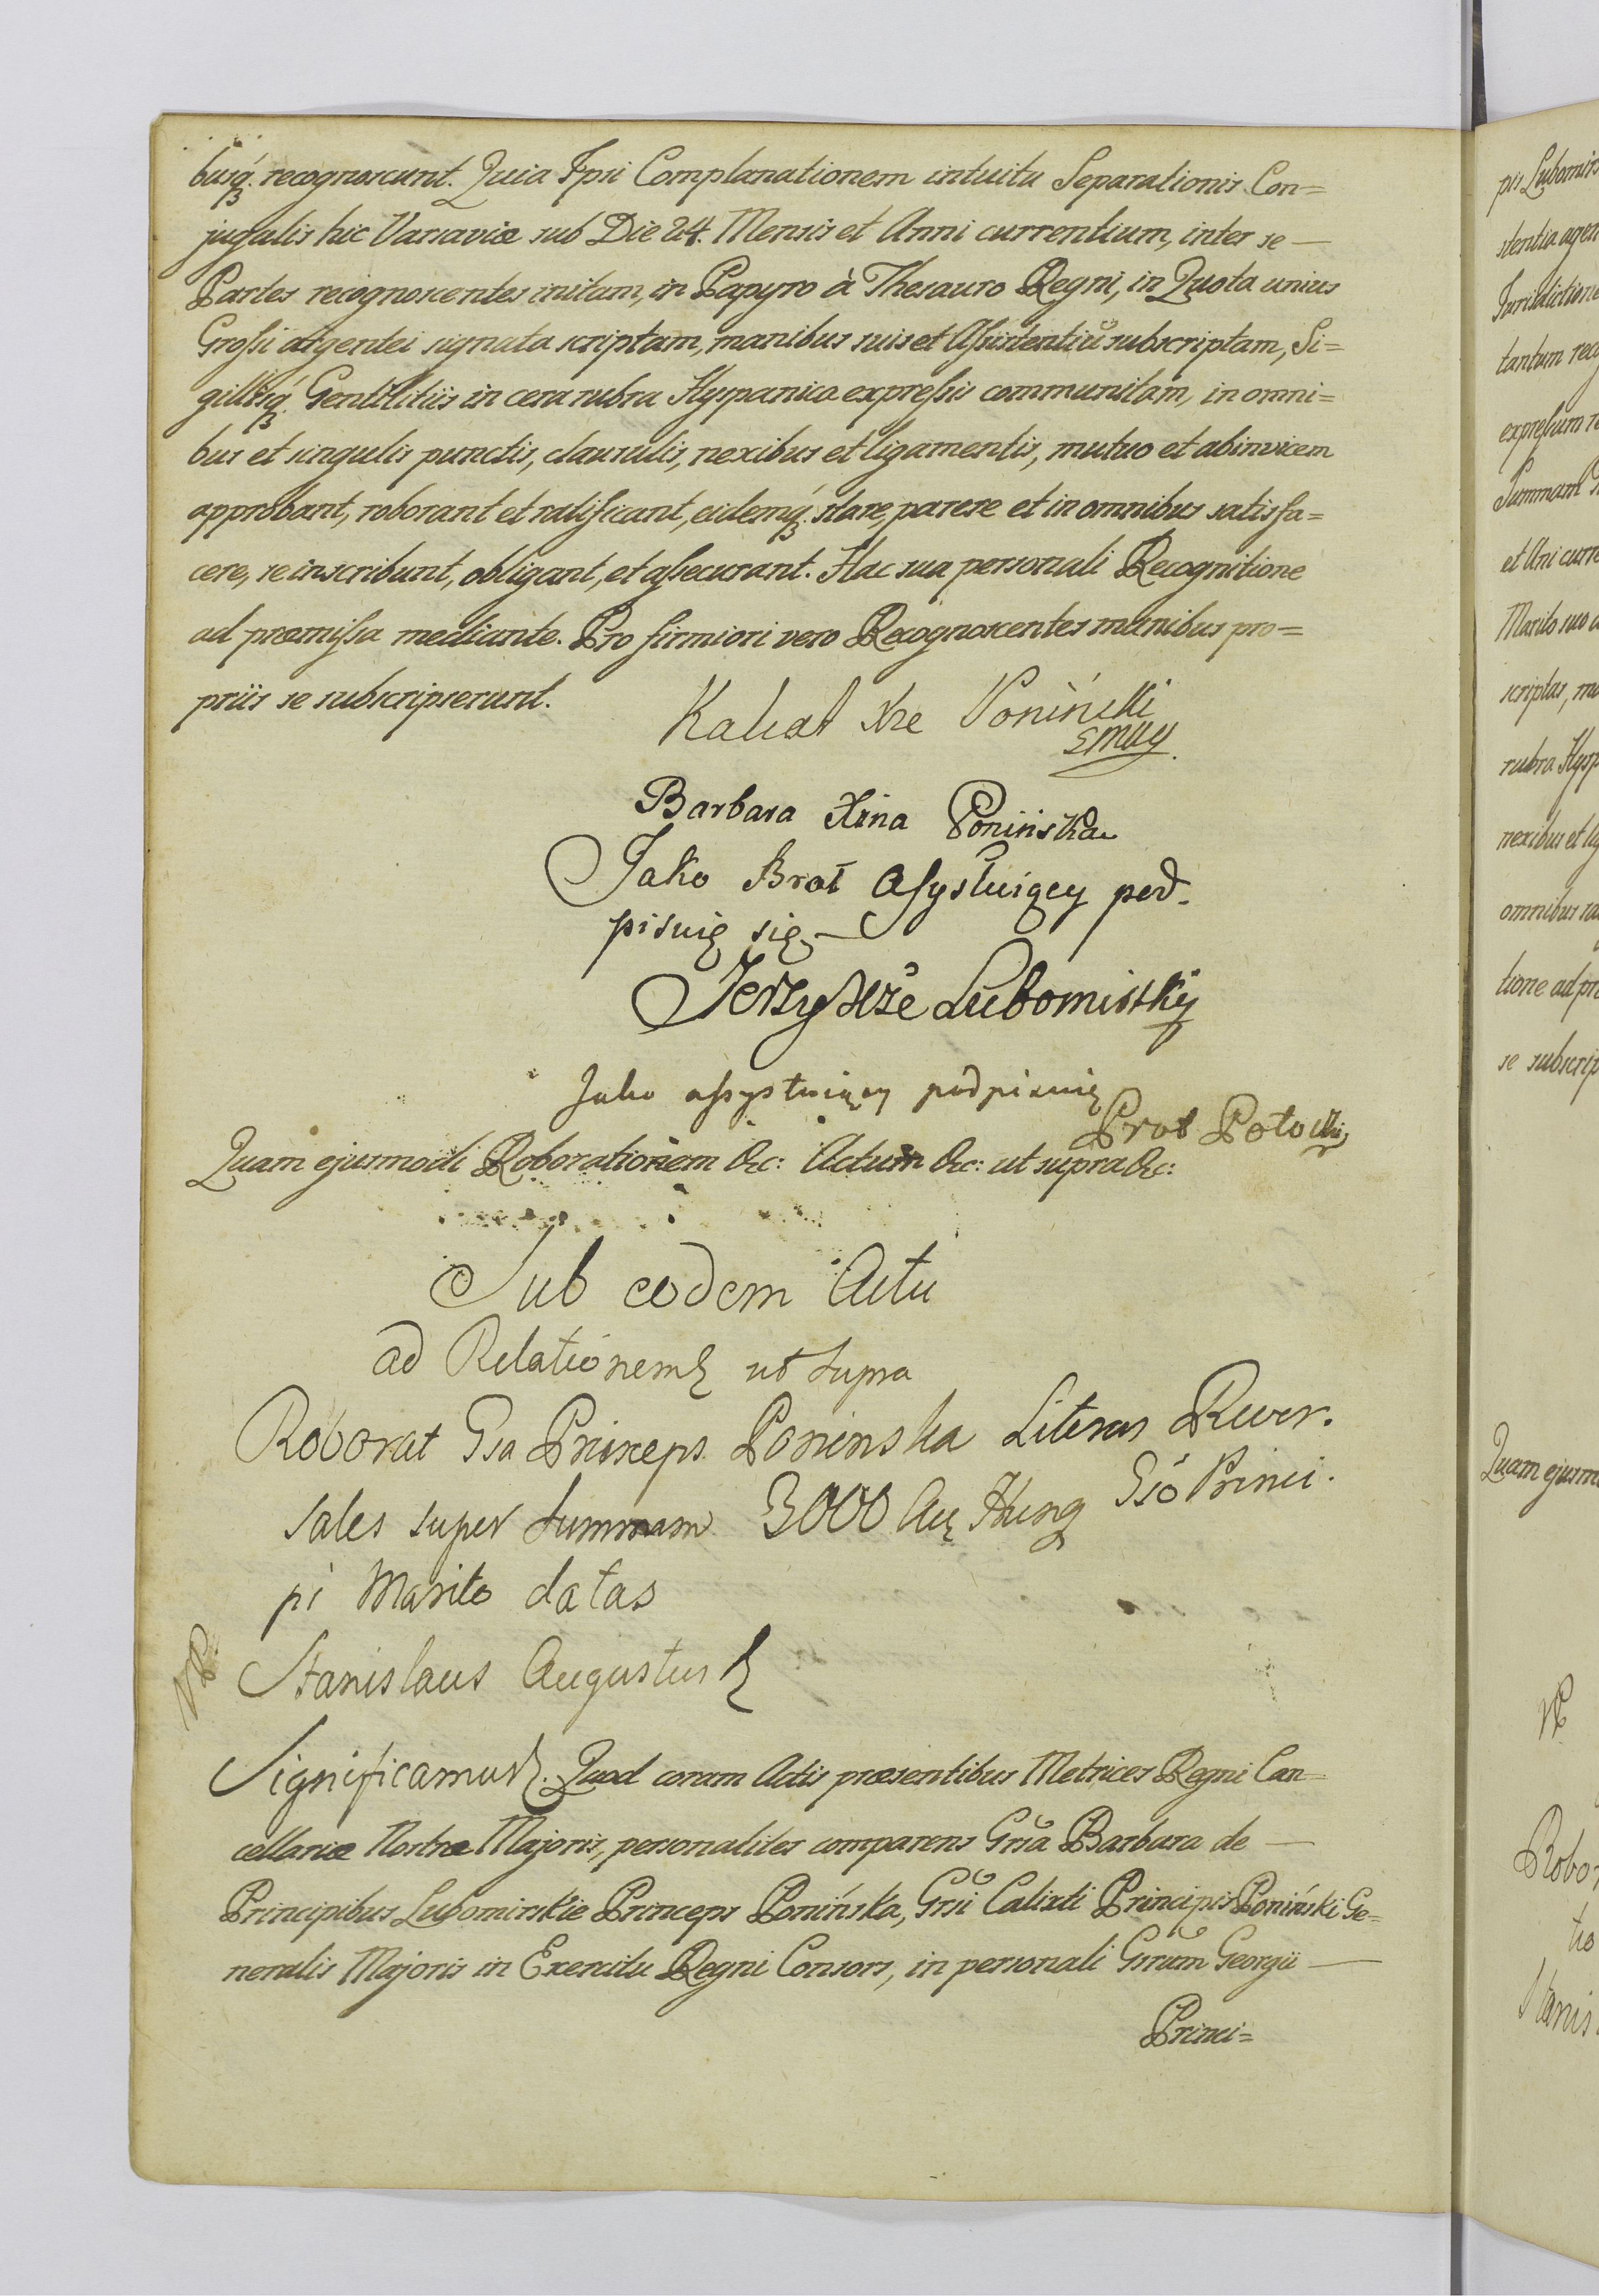 busq́ꝫ. recognoscunt. Quia Ipsi Complanationem intuitu Separationis Con=
jugalis hic Varsaviæ sub Die 24. Mensis et Anni currentium, inter se —
Partes recognoscentes initam, in Papyro à Thesauro Regni, in Quota unius
Grossi argentei signata scriptam, manibus suis et Assistentiũ subscriptam, Si=
gillisq́ꝫ. Gentilitiis in cera rubra Hyspanica expressis communitam, in omni=
bus et singulis punctis, clausulis, nexibus et ligamentis, mutuo et abinvicem
approbant, roborant et ratificant, eidemq́ꝫ. stare, parere et in omnibus satisfa=
cere, se inscribunt, obligant, et assecurant. Hac sua personali Recognitione
ad præmissa mediante. Pro firmiori vero Recognoscentes manibus pro=
priis se subscripserunt.
Kalixt Xże Poniński
Barbara Xżna Ponińska
Jako Brat Assystuiący pod-
pisuię się —
Jerzy Xże Lubomirsky
Jako assystuiący podpisuię
Prot Potocki
Quam ejusmodi Roborationem &c: Actum &c: ut supra &c:
Sub eodem Actu
ad Relationem ut supra
Roborat Gsa Princeps Poninska Literas Rever.
sales super Summam 3000 Aur Hung Gso Princi.
pi Marito datas
Stanislaus Augustus
Significamus. Quod coram Actis præsentibus Metrices Regni Can=
cellariæ Nostræ Majoris, personaliter comparens Grsa Barbara de —
Principibus Lubomirskie Princeps Ponińska, Grsi Calixti Principis Poniński Ge=
neralis Majoris in Exercitu Regni Consors, in personali Grsrum Georgii —
Princi=
pis Lubomirs
stentia agen
Jurisdictione
tantum reco
expressum re
Summam
et Ani curre
Marito suo
scriptas, ma
rubra Hysp
nexibus et lig
omnibus sa
tione ad præ
se subscrip
Quam ejusmo
Robor
tio
Stanis